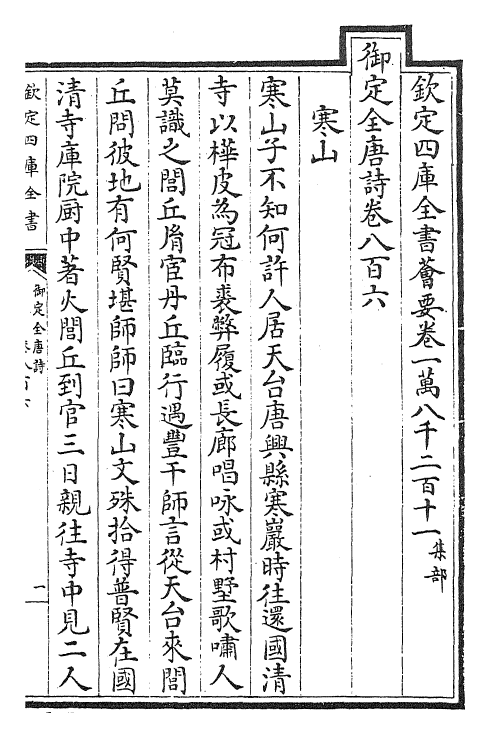 欽定四庫全書薈要卷一萬八千二百十一集部
御定全唐詩卷八百六
寒山
寒山子不知何許人居天台唐興縣寒巖時往還國清
寺以樺皮為冠布裘弊履或長廊唱咏或村墅歌嘯人
莫識之閭丘𦙍宦丹丘臨行遇豐干師言從天台來閭
丘問彼地有何賢堪師師曰寒山文殊拾得普賢在國
清寺庫院厨中著火閭丘到官三日親往寺中見二人
欽定四庫全書
御定全唐詩
卷八百六
一